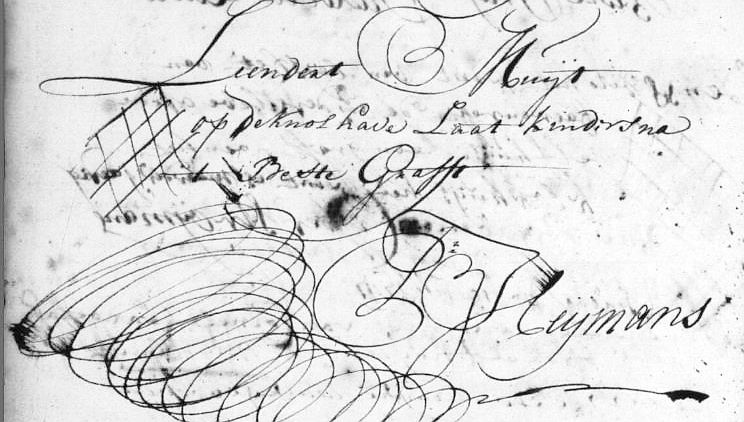 Leendert Muijt
op De knolhave Laat kinders na
t Beste Grafft
Heijmans